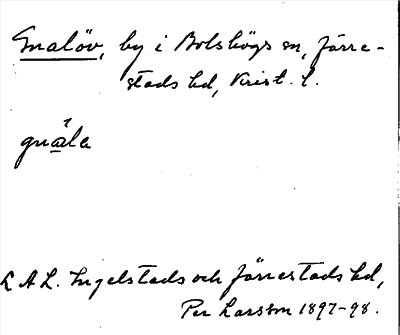 Gnalöv, by i Bolshögs sn, Järre-
stads hd, Krist. l.
gnála
L A L. Ingelstads och Järrestads hd,
Per Larsson 1897-98.